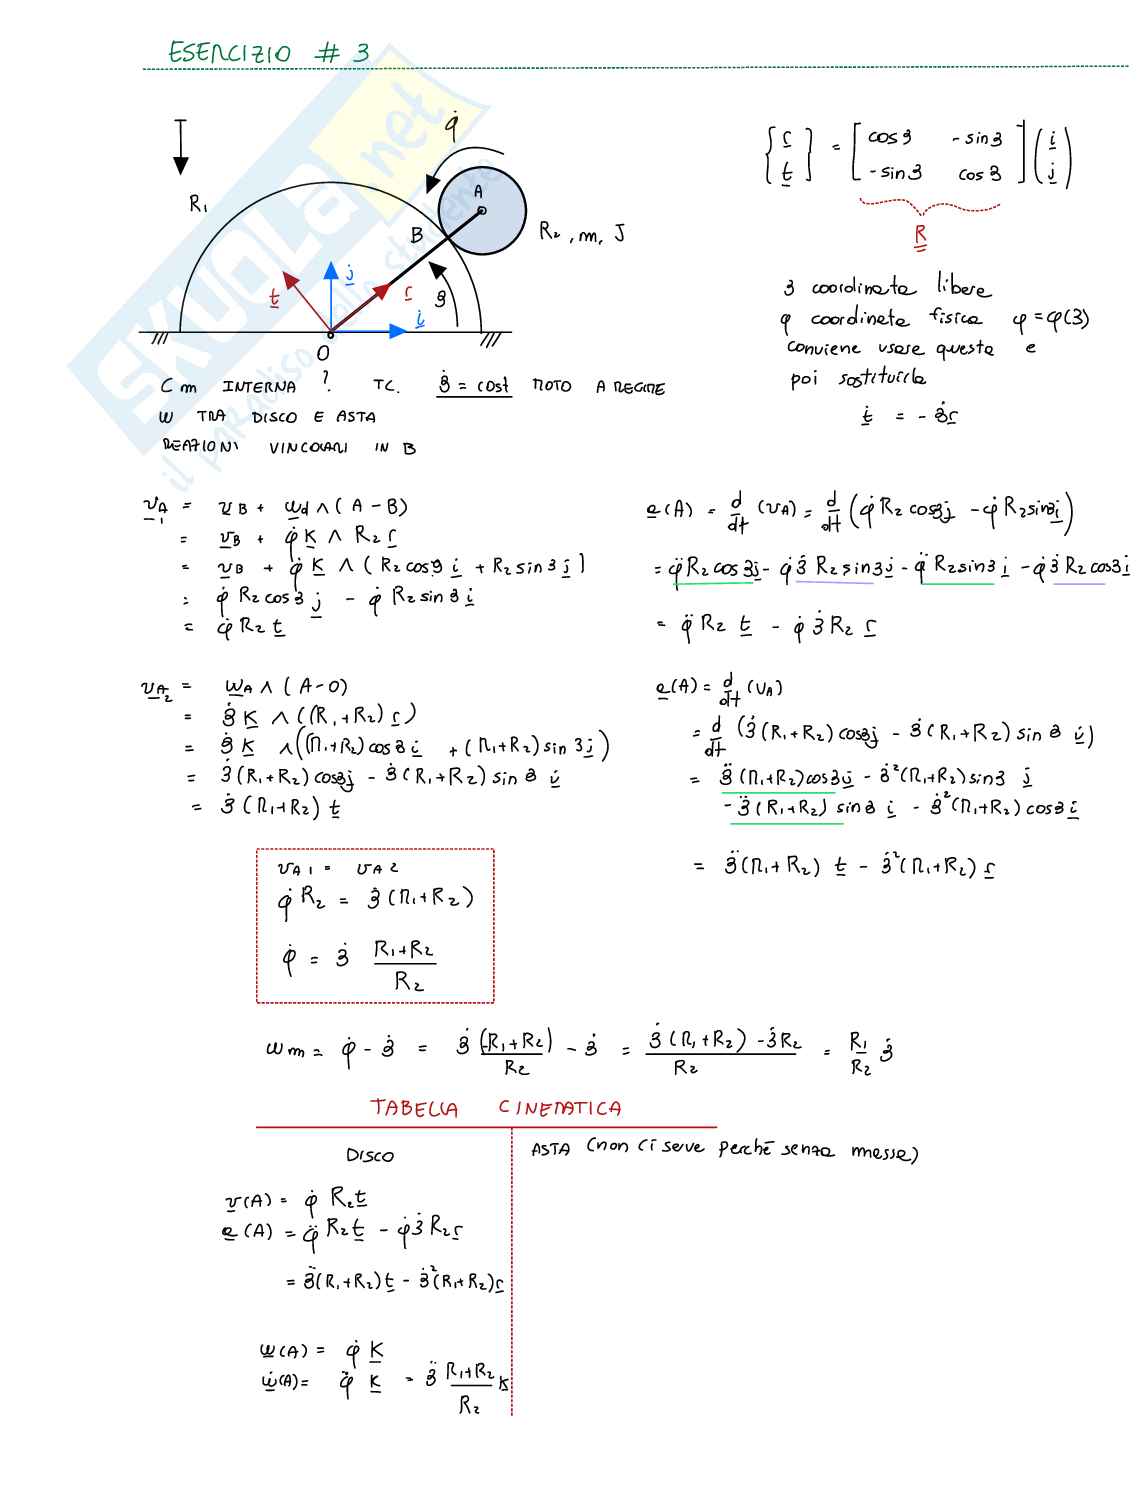 ESERCIZIO # 3
R₁
φ̇
A
B
R₂, m, J
t
j
r
i
ϑ
O
{r t} = [cos ϑ - sin ϑ
- sin ϑ cos ϑ] (i j)
R
ϑ coordinata libera
φ coordinata fisica φ = φ(ϑ)
conviene usare questa e
poi sostituirla
ṫ = - ϑ̇ r
Cm INTERNA ? TC. ϑ̇ = cost MOTO A REGIME
ω TRA DISCO E ASTA
REAZIONI VINCOLARI IN B
v_A₁ = v_B + ω_d ∧ (A - B)
= v_B + φ̇ K ∧ R₂ r
= v_B + φ̇ K ∧ (R₂ cos ϑ i + R₂ sin ϑ j)
= φ̇ R₂ cos ϑ j - φ̇ R₂ sin ϑ i
= φ̇ R₂ t
a(A) = d/dt (v_A) = d/dt (φ̇ R₂ cos ϑ j - φ̇ R₂ sin ϑ i)
= φ̈ R₂ cos ϑ j - φ̇ ϑ̇ R₂ sin ϑ j - φ̈ R₂ sin ϑ i - φ̇ ϑ̇ R₂ cos ϑ i
= φ̈ R₂ t - φ̇ ϑ̇ R₂ r
v_A₂ = ω_A ∧ (A - O)
= ϑ̇ K ∧ ((R₁ + R₂) r)
= ϑ̇ K ∧ ((R₁ + R₂) cos ϑ i + (R₁ + R₂) sin ϑ j)
= ϑ̇ (R₁ + R₂) cos ϑ j - ϑ̇ (R₁ + R₂) sin ϑ i
= ϑ̇ (R₁ + R₂) t
a(A) = d/dt (v_A)
= d/dt (ϑ̇ (R₁ + R₂) cos ϑ j - ϑ̇ (R₁ + R₂) sin ϑ i)
= ϑ̈ (R₁ + R₂) cos ϑ j - ϑ̇² (R₁ + R₂) sin ϑ j
- ϑ̈ (R₁ + R₂) sin ϑ i - ϑ̇² (R₁ + R₂) cos ϑ i
= ϑ̈ (R₁ + R₂) t - ϑ̇² (R₁ + R₂) r
v_A1 = v_A2
φ̇ R₂ = ϑ̇ (R₁ + R₂)
φ̇ = ϑ̇ (R₁ + R₂)/R₂
ωm = φ̇ - ϑ̇ = ϑ̇ (R₁ + R₂)/R₂ - ϑ̇ = (ϑ̇ (R₁ + R₂) - ϑ̇ R₂)/R₂ = R₁/R₂ ϑ̇
TABELLA CINEMATICA
DISCO
ASTA (non ci serve perchè senza massa)
v(A) = φ̇ R₂ t
a(A) = φ̈ R₂ t - φ̇ ϑ̇ R₂ r
= ϑ̈ (R₁ + R₂) t - ϑ̇² (R₁ + R₂) r
ω(A) = φ̇ K
ω̇(A) = φ̈ K = ϑ̈ (R₁ + R₂)/R₂ K
SKUOLA.net
il paradiso dello studente